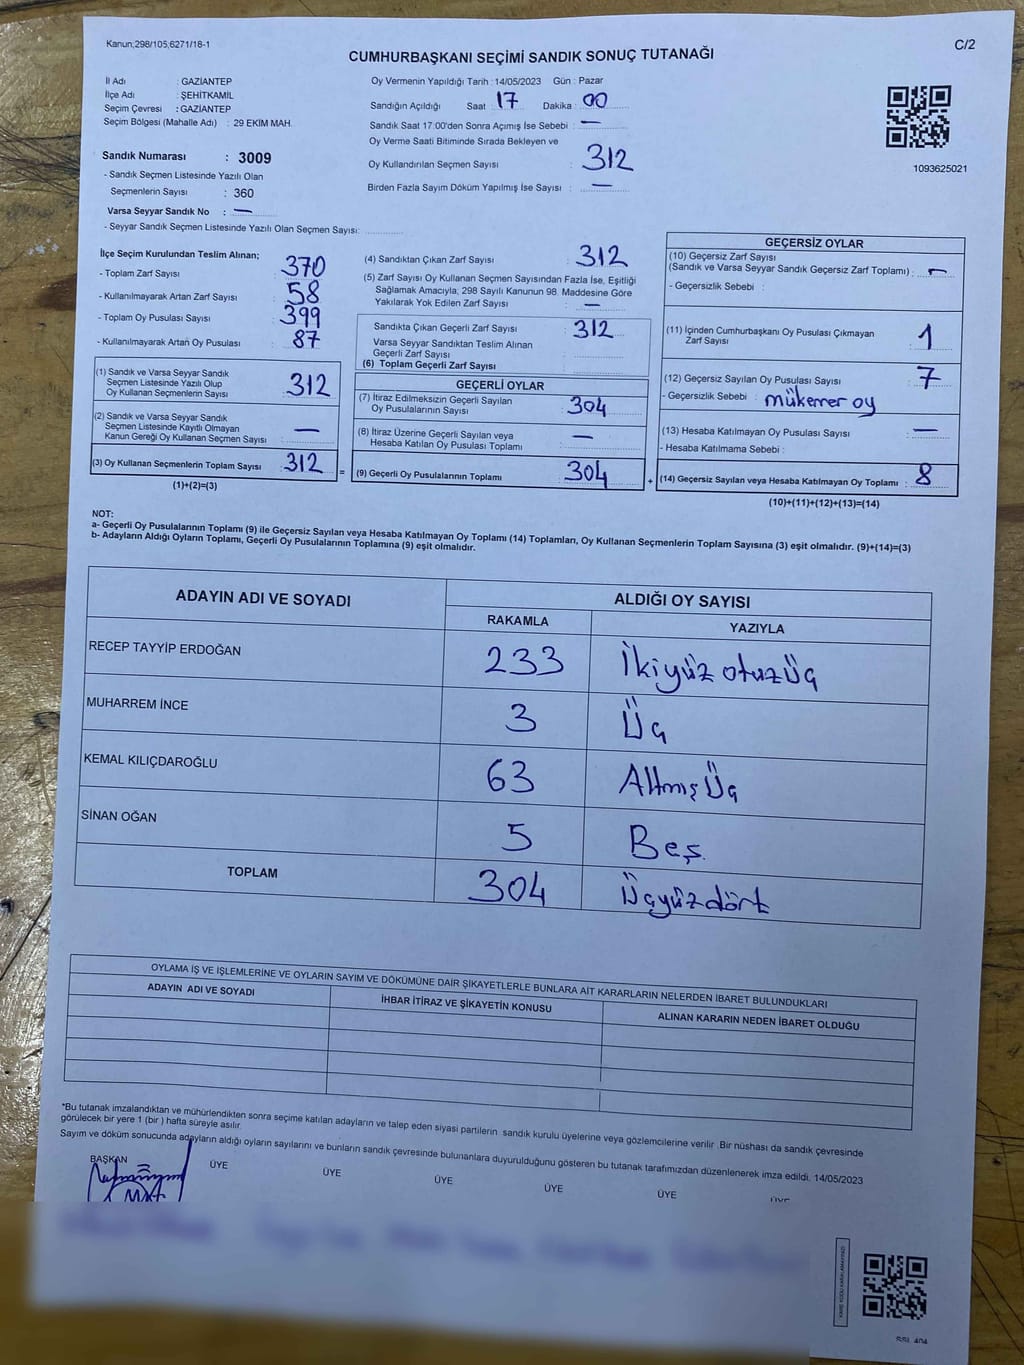 Kanun;298/105;6271/18-1
C/2
CUMHURBAŞKANI SEÇİMİ SANDIK SONUÇ TUTANAĞI
İl Adı : GAZİANTEP
İlçe Adı : ŞEHİTKAMİL
Seçim Çevresi : GAZİANTEP
Seçim Bölgesi (Mahalle Adı) : 29 EKİM MAH.
Sandık Numarası : 3009
- Sandık Seçmen Listesinde Yazılı Olan
Seçmenlerin Sayısı : 360
Varsa Seyyar Sandık No : —
- Seyyar Sandık Seçmen Listesinde Yazılı Olan Seçmen Sayısı:
Oy Vermenin Yapıldığı Tarih : 14/05/2023 Gün : Pazar
Sandığın Açıldığı Saat 17 Dakika 00
Sandık Saat 17:00'den Sonra Açımış İse Sebebi : —
Oy Verme Saati Bitiminde Sırada Bekleyen ve
Oy Kullandırılan Seçmen Sayısı : 312
Birden Fazla Sayım Döküm Yapılmış İse Sayısı : —
1093625021
İlçe Seçim Kurulundan Teslim Alınan;
- Toplam Zarf Sayısı : 370
- Kullanılmayarak Artan Zarf Sayısı : 58
- Toplam Oy Pusulası Sayısı : 399
- Kullanılmayarak Artan Oy Pusulası : 87
(1) Sandık ve Varsa Seyyar Sandık
Seçmen Listesinde Yazılı Olup
Oy Kullanan Seçmenlerin Sayısı : 312
(2) Sandık ve Varsa Seyyar Sandık
Seçmen Listesinde Kayıtlı Olmayan
Kanun Gereği Oy Kullanan Seçmen Sayısı : —
(3) Oy Kullanan Seçmenlerin Toplam Sayısı : 312
(1)+(2)=(3)
(4) Sandıktan Çıkan Zarf Sayısı : 312
(5) Zarf Sayısı Oy Kullanan Seçmen Sayısından Fazla İse, Eşitliği
Sağlamak Amacıyla; 298 Sayılı Kanunun 98. Maddesine Göre
Yakılarak Yok Edilen Zarf Sayısı : —
Sandıkta Çıkan Geçerli Zarf Sayısı : 312
Varsa Seyyar Sandıktan Teslim Alınan
Geçerli Zarf Sayısı :
(6) Toplam Geçerli Zarf Sayısı :
GEÇERLİ OYLAR
(7) İtiraz Edilmeksizin Geçerli Sayılan
Oy Pusulalarının Sayısı : 304
(8) İtiraz Üzerine Geçerli Sayılan veya
Hesaba Katılan Oy Pusulası Toplamı : —
= (9) Geçerli Oy Pusulalarının Toplamı : 304 +
GEÇERSİZ OYLAR
(10) Geçersiz Zarf Sayısı
(Sandık ve Varsa Seyyar Sandık Geçersiz Zarf Toplamı) : —
- Geçersizlik Sebebi :
(11) İçinden Cumhurbaşkanı Oy Pusulası Çıkmayan
Zarf Sayısı : 1
(12) Geçersiz Sayılan Oy Pusulası Sayısı : 7
- Geçersizlik Sebebi : mükerrer oy
(13) Hesaba Katılmayan Oy Pusulası Sayısı : —
- Hesaba Katılmama Sebebi :
(14) Geçersiz Sayılan veya Hesaba Katılmayan Oy Toplamı : 8
(10)+(11)+(12)+(13)=(14)
NOT:
a- Geçerli Oy Pusulalarının Toplamı (9) ile Geçersiz Sayılan veya Hesaba Katılmayan Oy Toplamı (14) Toplamları, Oy Kullanan Seçmenlerin Toplam Sayısına (3) eşit olmalıdır. (9)+(14)=(3)
b- Adayların Aldığı Oyların Toplamı, Geçerli Oy Pusulalarının Toplamına (9) eşit olmalıdır.
ADAYIN ADI VE SOYADI ALDIĞI OY SAYISI
RAKAMLA YAZIYLA
RECEP TAYYİP ERDOĞAN 233 İkiyüz otuzüç
MUHARREM İNCE 3 Üç
KEMAL KILIÇDAROĞLU 63 Altmış Üç
SİNAN OĞAN 5 Beş
TOPLAM 304 Üçyüzdört
OYLAMA İŞ VE İŞLEMLERİNE VE OYLARIN SAYIM VE DÖKÜMÜNE DAİR ŞİKAYETLERLE BUNLARA AİT KARARLARIN NELERDEN İBARET BULUNDUKLARI
ADAYIN ADI VE SOYADI İHBAR İTİRAZ VE ŞİKAYETİN KONUSU ALINAN KARARIN NEDEN İBARET OLDUĞU
*Bu tutanak imzalandıktan ve mühürlendikten sonra seçime katılan adayların ve talep eden siyasi partilerin sandık kurulu üyelerine veya gözlemcilerine verilir .Bir nüshası da sandık çevresinde
görülecek bir yere 1 (bir ) hafta süreyle asılır.
Sayım ve döküm sonucunda adayların aldığı oyların sayılarını ve bunların sandık çevresinde bulunanlara duyurulduğunu gösteren bu tutanak tarafımızdan düzenlenerek imza edildi. 14/05/2023
BAŞKAN ÜYE ÜYE ÜYE ÜYE ÜYE ÜYE